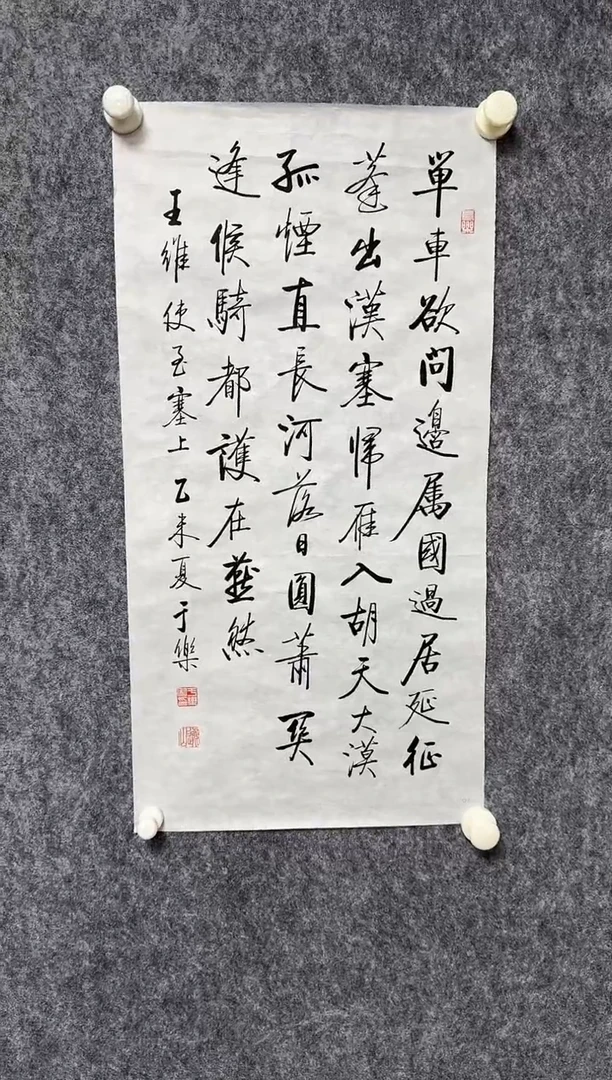 單車欲問邊属國過居延征
蓬出漢塞歸雁入胡天大漠
孤煙直長河落日圓蕭関
逢候騎都護在燕然
王維使至塞上乙未夏于樂